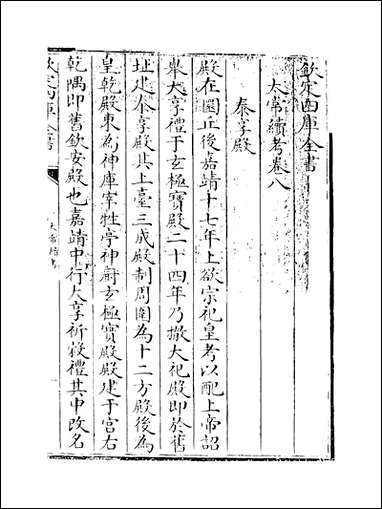 欽定四庫全書
太常續考卷八
泰享殿
殿在圜丘後嘉靖十七年上欲宗祀皇考以配上帝詔
舉大享禮于玄極寶殿二十四年乃撤大祀殿即於舊
址建泰享殿其上臺三成殿制周圍為十二方殿後為
皇乾殿東為神庫宰牲亭神廚玄極寶殿殿建于宮右
乾隅即舊欽安殿也嘉靖中行大享祈穀禮其中改名
欽定四庫全書
太常續考